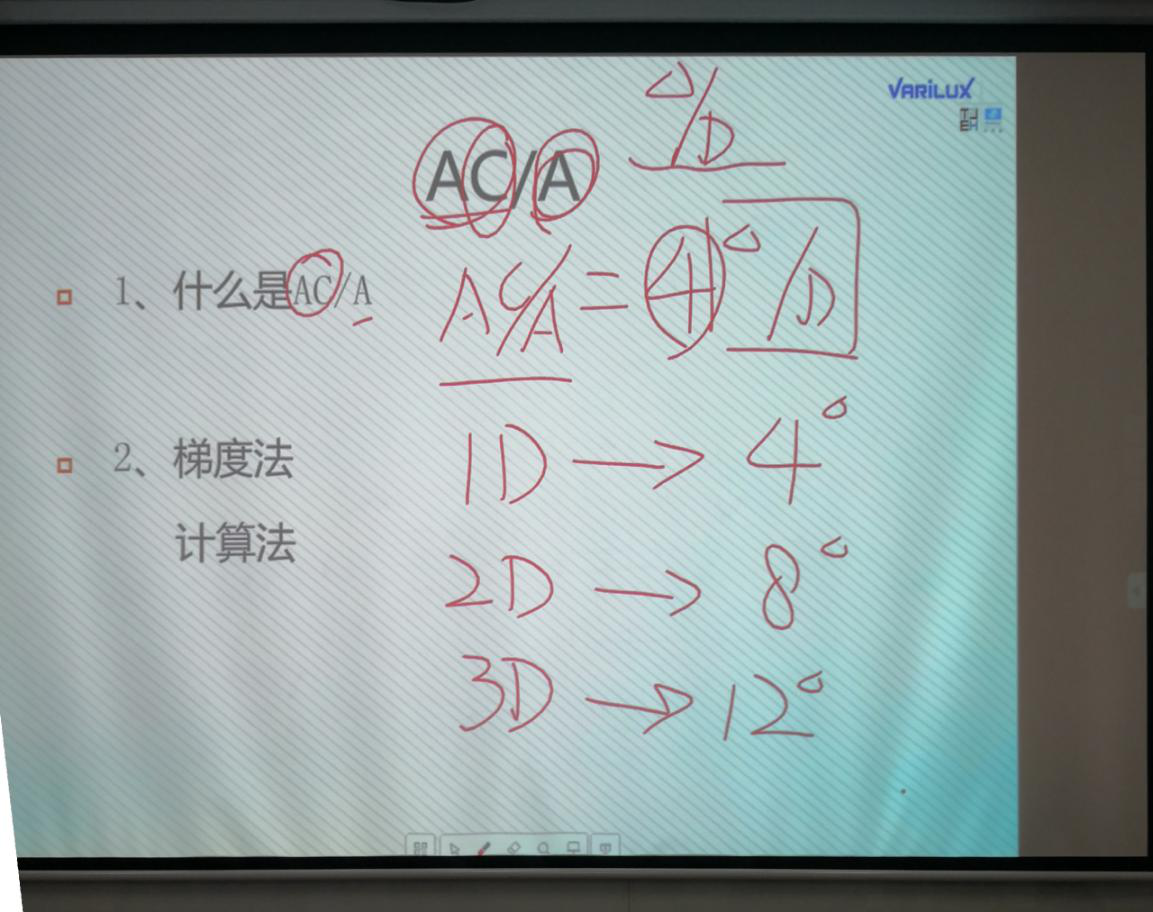 VARILUX
△/D
AC/A
1、什么是AC/A
AC/A = 4△/D
1D → 4△
2、梯度法
计算法
2D → 8△
3D → 12△